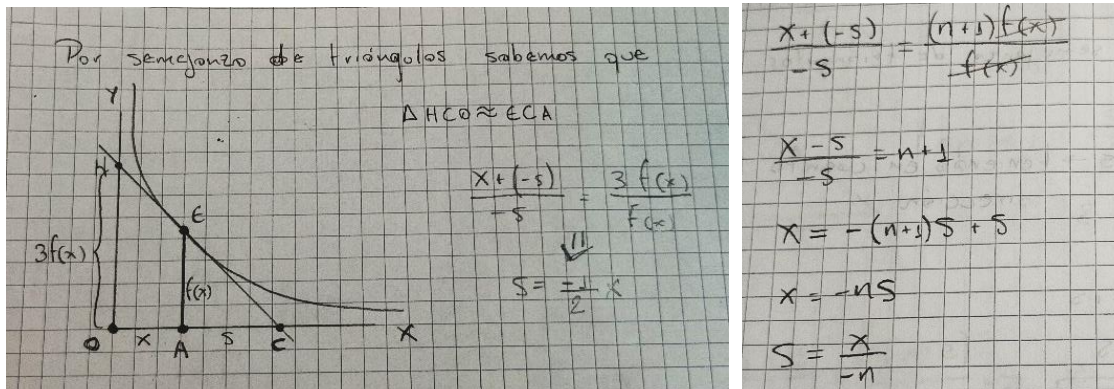 Por semejanzo de triángulos sabemos que
Δ HCO ≈ ECA
Y
H
E
3f(x)
f(x)
O x A s C X
x+(-s) / -s = 3 f(x) / f(x)
⇓
s = -1/2 x
x+(-s) / -s = (n+1) f(x) / f(x)
x-s / -s = n+1
x = -(n+1)s + s
x = -ns
s = x / -n